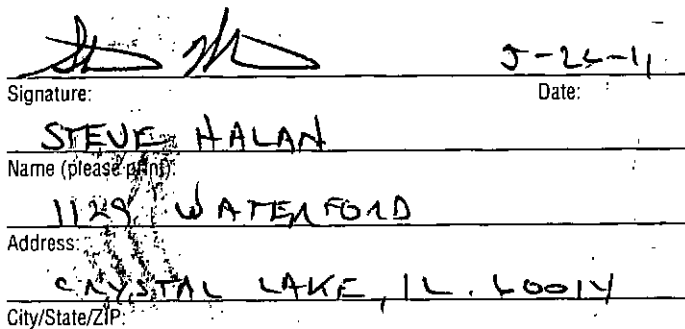 5-26-11
Signature: Date:
STEVE HALAN
Name (please print):
1129 WATERFORD
Address:
CRYSTAL LAKE, IL. 60014
City/State/ZIP: